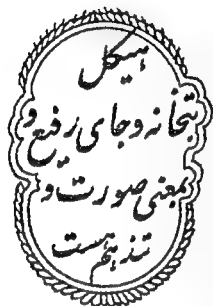 هیکل
بتخانه و جای رفیع و
بمعنی صورت و
تنه هم هست